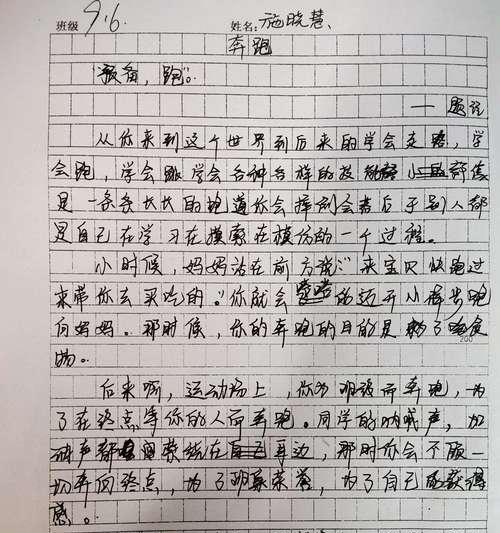 班级 9.6. 姓名: 施晓慧
奔跑
"预备，跑"。
——题记
从你来到这个世界到后来的学会走路，学
会跑，学会跳学会各种各样的技能
是一条条长长的跑道你会摔倒会落后于别人都
是自己在学习在摸索在模仿的一个过程。
小时候，妈妈站在前方说:"来宝贝快跑过
来带你去买吃的。"你就会 的迈开小 步跑
向妈妈。那时候，你的奔跑的目的是为了吃食
200
物。
后来啊，运动场上，你为班级而奔跑，为
了在终点等你的人而奔跑。同学的呐喊声，加
油声都 萦绕在自己耳边，那时你会不顾一
切奔向终点，为了班级荣誉，为了自己的获得
感。